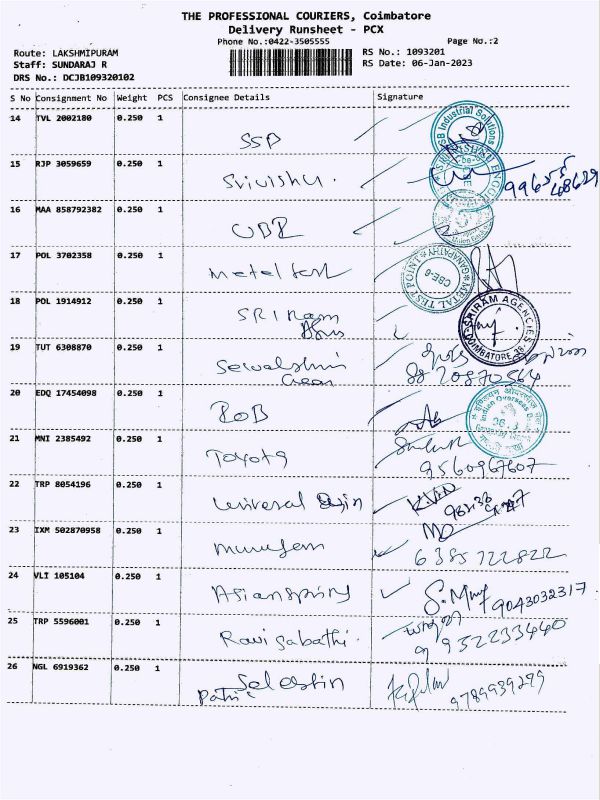 THE PROFESSIONAL COURIERS, Coimbatore
Delivery Runsheet - PCX
Phone No.:0422-3505555 Page No.:2
Route: LAKSHMIPURAM RS No.: 1093201
Staff: SUNDARAJ R RS Date: 06-Jan-2023
DRS No.: DCJB109320102
S No Consignment No Weight PCS Consignee Details Signature
14 TVL 2002180 0.250 1
SSB
15 RJP 3059659 0.250 1
Srivishu.
16 MAA 858792382 0.250 1
UBI
17 POL 3702358 0.250 1
Metal test
METAL TEST POINT GANAPATHY CBE-6
18 POL 1914912 0.250 1
SRI Ram
SRIRAM AGENCIES COIMBATORE
19 TUT 6308870 0.250 1
88 20870564
20 EDQ 17454098 0.250 1
BOB
Indian Overseas
21 MNI 2385492 0.250 1
Toyota
9560967607
22 TRP 8054196 0.250 1
Universal
23 IXM 502870958 0.250 1
Murugan
6385722822
24 VLI 105104 0.250 1
Asianspring
9043032317
25 TRP 5596001 0.250 1
Ravi sabathi.
9932233440
26 NGL 6919362 0.250 1
Selastin
9789939279